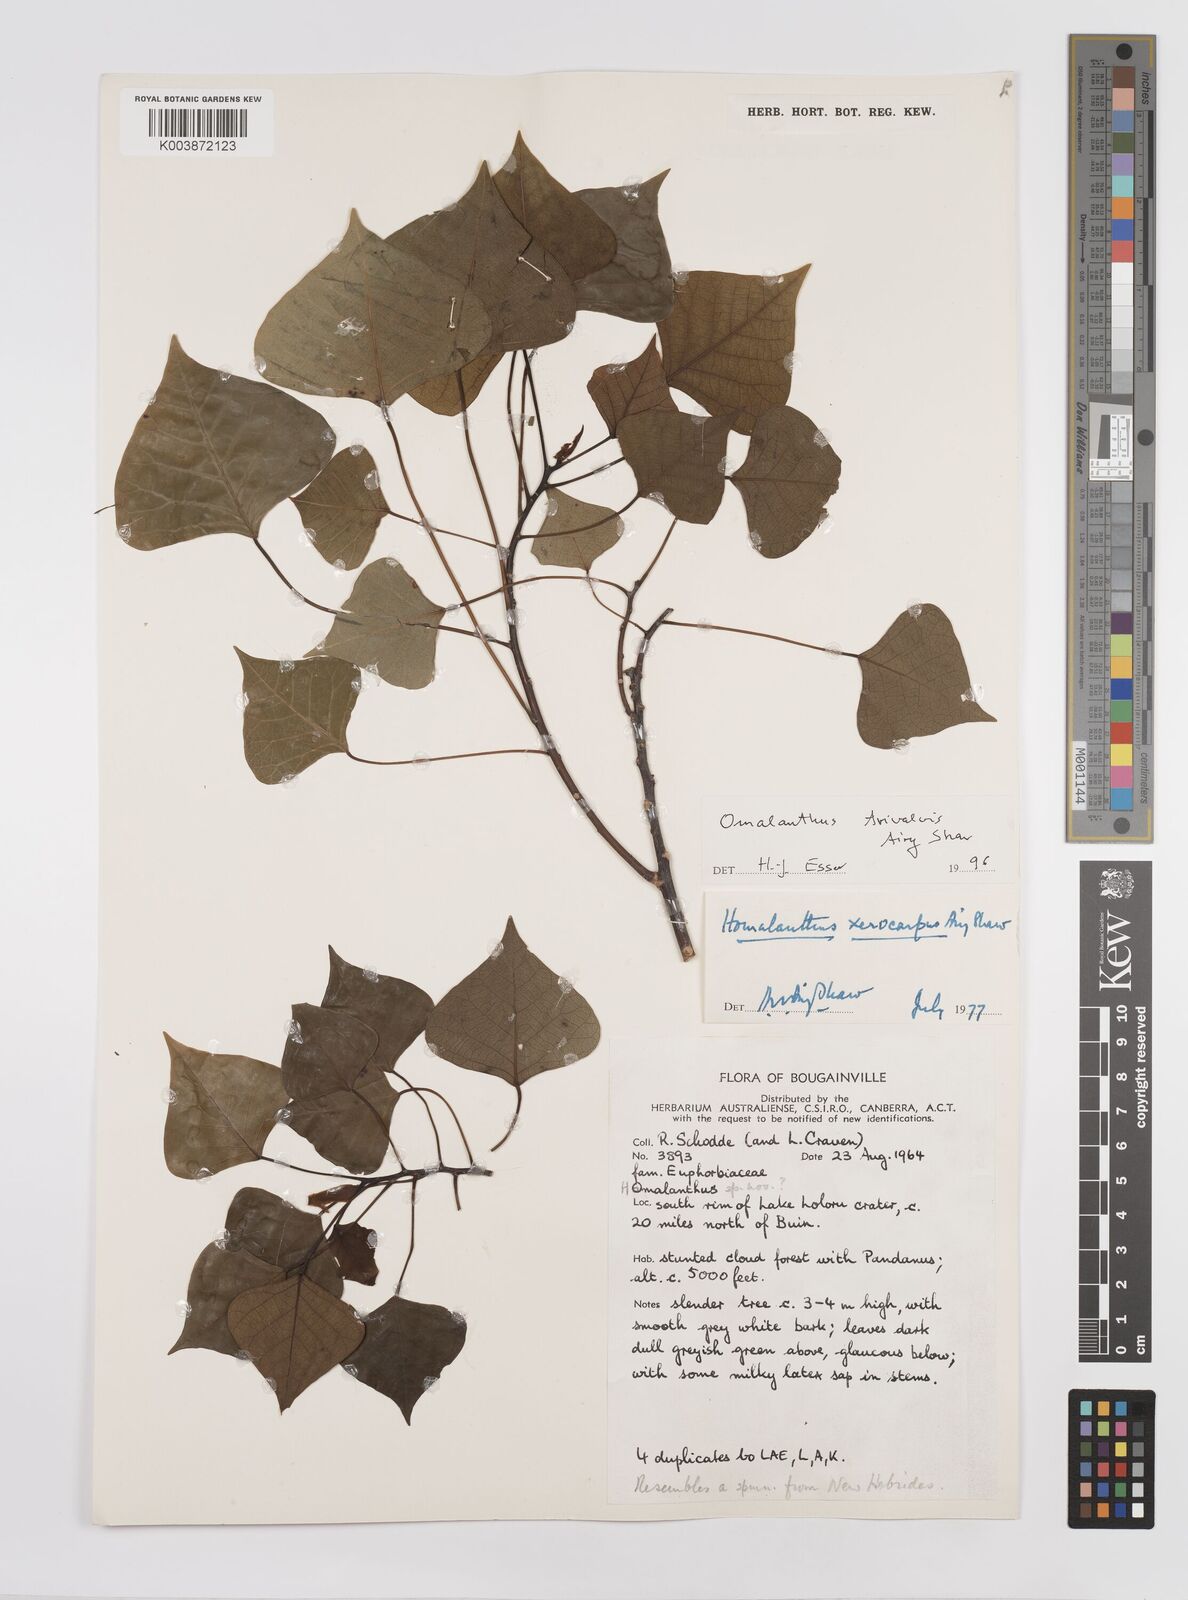 ROYAL BOTANIC GARDENS KEW
K003872123
HERB. HORT. BOT. REG. KEW.
Omalanthus trivalvis
Airy Shaw
DET H.-J. Esser 1996
Homalanthus xerocarpus Airy Shaw
DET Airy Shaw July 1977
FLORA OF BOUGAINVILLE
Distributed by the
HERBARIUM AUSTRALIENSE, C.S.I.R.O., CANBERRA, A.C.T.
with the request to be notified of new identifications.
Coll. R. Schodde (and L. Craven)
No. 3893 Date 23 Aug. 1964
fam. Euphorbiaceae
HOmalanthus sp. nov. ?
Loc. south rim of Lake Loloru crater, c.
20 miles north of Buin.
Hab. stunted cloud forest with Pandanus;
alt. c. 5000 feet.
Notes slender tree c. 3-4 m high, with
smooth grey white bark; leaves dark
dull greyish green above, glaucous below;
with some milky latex sap in stems.
4 duplicates to LAE, L, A, K.
Resembles a spmn. from New Hebrides.
inches
centimetres
Density
Don Williams
M001144
Royal Botanic Gardens
Kew
copyright reserved
0 1 2 3 4 5 6 7 8 9 10
cm